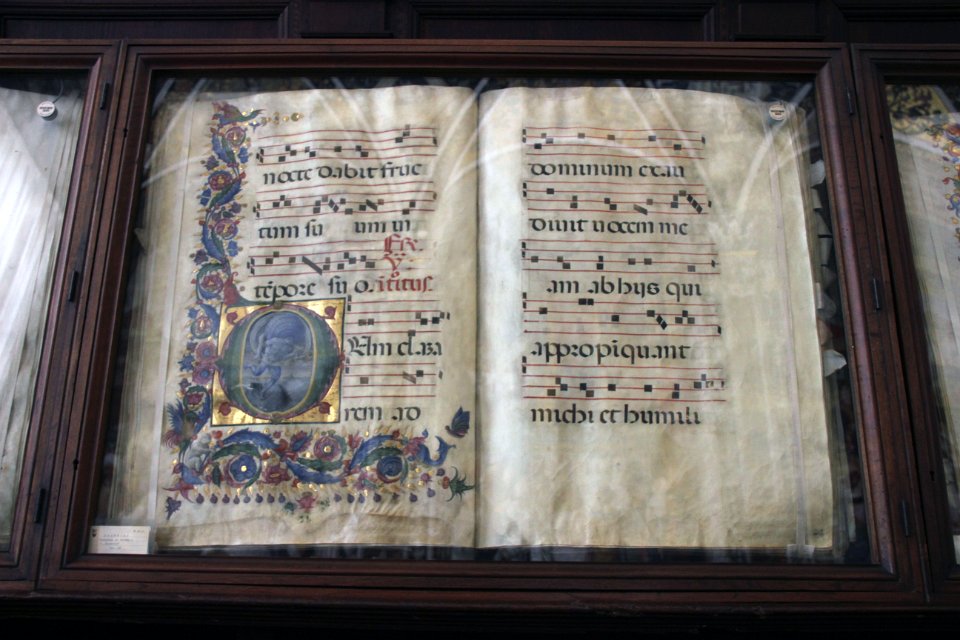 nocte dabit fruc
tum su um in
tēpore su o.
DUm clama
rem ad
dominum exau
diuit uocem me
am ab hijs qui
appropīquant
michi et humili